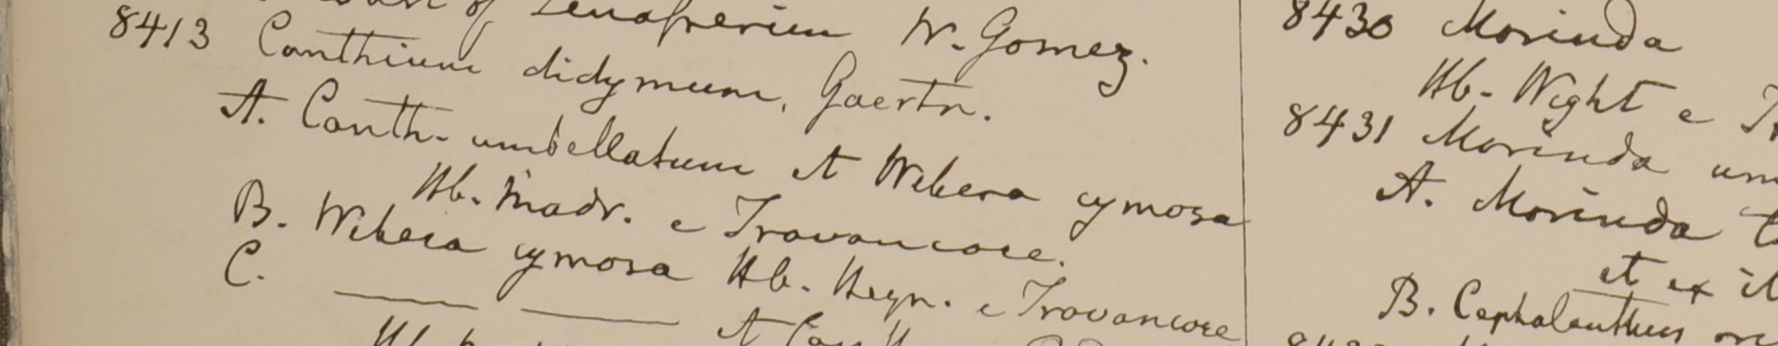 of Tenasserim W. Gomez.
8413 Canthium didymum, Gaertn.
A. Canth. umbellatum et Webera cymosa
Hb. Madr. e Travancore.
B. Webera cymosa Hb. Heyn. e Travancore
C. —— ——
8430 Morinda
Hb. Wight e
8431 Morinda um
A. Morinda
et ex
B. Cephalanthus